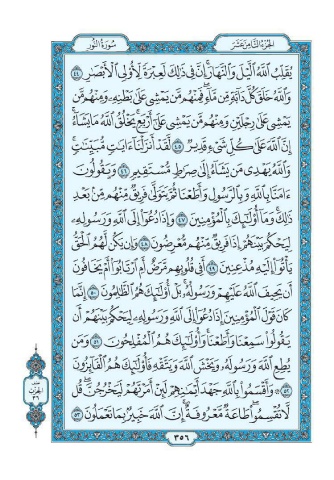 سُورَةُ النُّورِ
الجُزْءُ الثَّامِنَ عَشَرَ
يُقَلِّبُ ٱللَّهُ ٱلَّيۡلَ وَٱلنَّهَارَۚ إِنَّ فِي ذَٰلِكَ لَعِبۡرَةٗ لِّأُوْلِي ٱلۡأَبۡصَٰرِ ٤٤
وَٱللَّهُ خَلَقَ كُلَّ دَآبَّةٖ مِّن مَّآءٖۖ فَمِنۡهُم مَّن يَمۡشِي عَلَىٰ بَطۡنِهِۦ وَمِنۡهُم مَّن
يَمۡشِي عَلَىٰ رِجۡلَيۡنِ وَمِنۡهُم مَّن يَمۡشِي عَلَىٰٓ أَرۡبَعٖۚ يَخۡلُقُ ٱللَّهُ مَا يَشَآءُۚ
إِنَّ ٱللَّهَ عَلَىٰ كُلِّ شَيۡءٖ قَدِيرٞ ٤٥ لَّقَدۡ أَنزَلۡنَآ ءَايَٰتٖ مُّبَيِّنَٰتٖۚ
وَٱللَّهُ يَهۡدِي مَن يَشَآءُ إِلَىٰ صِرَٰطٖ مُّسۡتَقِيمٖ ٤٦ وَيَقُولُونَ
ءَامَنَّا بِٱللَّهِ وَبِٱلرَّسُولِ وَأَطَعۡنَا ثُمَّ يَتَوَلَّىٰ فَرِيقٞ مِّنۡهُم مِّنۢ بَعۡدِ
ذَٰلِكَۚ وَمَآ أُوْلَٰٓئِكَ بِٱلۡمُؤۡمِنِينَ ٤٧ وَإِذَا دُعُوٓاْ إِلَى ٱللَّهِ وَرَسُولِهِۦ
لِيَحۡكُمَ بَيۡنَهُمۡ إِذَا فَرِيقٞ مِّنۡهُم مُّعۡرِضُونَ ٤٨ وَإِن يَكُن لَّهُمُ ٱلۡحَقُّ
يَأۡتُوٓاْ إِلَيۡهِ مُذۡعِنِينَ ٤٩ أَفِي قُلُوبِهِم مَّرَضٌ أَمِ ٱرۡتَابُوٓاْ أَمۡ يَخَافُونَ
أَن يَحِيفَ ٱللَّهُ عَلَيۡهِمۡ وَرَسُولُهُۥۚ بَلۡ أُوْلَٰٓئِكَ هُمُ ٱلظَّٰلِمُونَ ٥٠ إِنَّمَا
كَانَ قَوۡلَ ٱلۡمُؤۡمِنِينَ إِذَا دُعُوٓاْ إِلَى ٱللَّهِ وَرَسُولِهِۦ لِيَحۡكُمَ بَيۡنَهُمۡ أَن
يَقُولُواْ سَمِعۡنَا وَأَطَعۡنَاۚ وَأُوْلَٰٓئِكَ هُمُ ٱلۡمُفۡلِحُونَ ٥١ وَمَن
يُطِعِ ٱللَّهَ وَرَسُولَهُۥ وَيَخۡشَ ٱللَّهَ وَيَتَّقۡهِ فَأُوْلَٰٓئِكَ هُمُ ٱلۡفَآئِزُونَ
٥٢ وَأَقۡسَمُواْ بِٱللَّهِ جَهۡدَ أَيۡمَٰنِهِمۡ لَئِنۡ أَمَرۡتَهُمۡ لَيَخۡرُجُنَّۖ قُل
لَّا تُقۡسِمُواْۖ طَاعَةٞ مَّعۡرُوفَةٌۚ إِنَّ ٱللَّهَ خَبِيرُۢ بِمَا تَعۡمَلُونَ ٥٣
٣٥٦
الحزب
٣٦